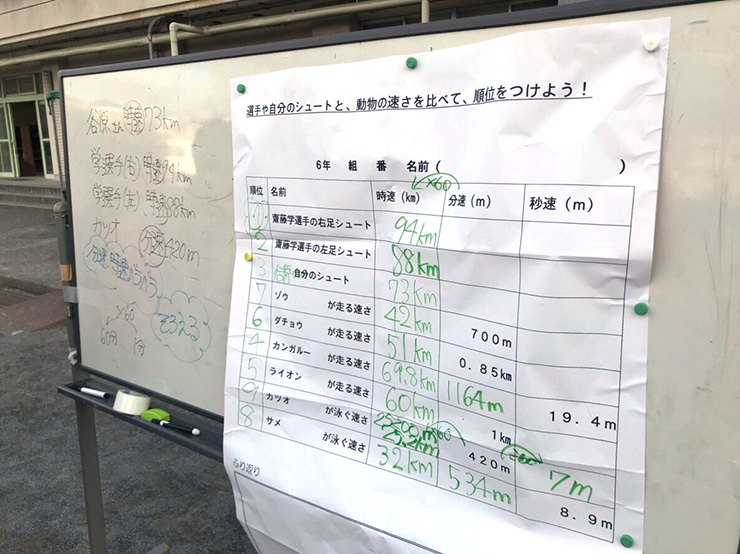 谷原さん 時速73km
学選手(右) 時速94km
学選手(左) 時速88km
カツオ 分速420m
分速 時速 バラバラ
×60
60分 1分
そろえる
選手や自分のシュートと、動物の速さを比べて、順位をつけよう！
6年 組 番 名前( )
×60
順位 名前 時速(km) 分速(m) 秒速(m)
1 齋藤学選手の右足シュート 94km
2 齋藤学選手の左足シュート 88km
3 谷原 自分のシュート 73km
7 ゾウ が走る速さ 42km 700m
6 ダチョウ が走る速さ 51km 0.85km
4 カンガルー が走る速さ 69.8km 1164m 19.4m
5 ライオン が走る速さ 60km 1km
9 カツオ が泳ぐ速さ 25200m 25.2km ×60 420m ÷60 7m
8 サメ が泳ぐ速さ 32km 534m 8.9m
ふり返り